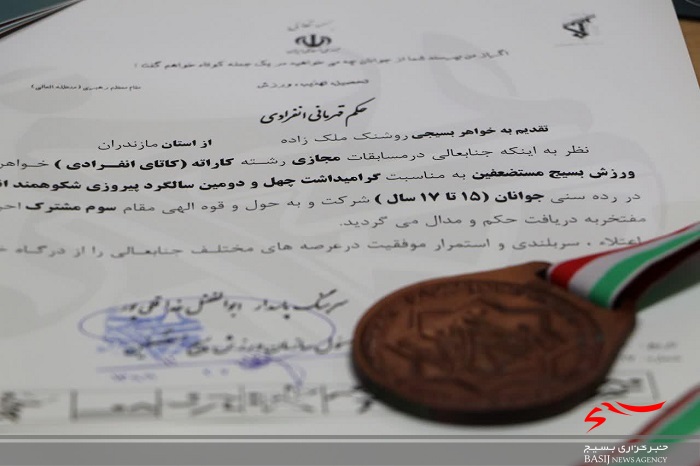 اگر از من بپرسند شما از جوانان چه می خواهید در یک جمله کوتاه خواهم گفت :
تحصیل، تهذیب، ورزش
مقام معظم رهبری (مدظله العالی)
حکم قهرمانی انفرادی
تقدیم به خواهر بسیجی روشنک ملک زاده از استان مازندران
نظر به اینکه جنابعالی درمسابقات مجازی رشته کاراته (کاتای انفرادی ) خواهر
ورزش بسیج مستضعفین به مناسبت گرامیداشت چهل و دومین سالگرد پیروزی شکوهمند
در رده سنی جوانان (۱۵ تا ۱۷ سال ) شرکت و به حول و قوه الهی مقام سوم مشترک
مفتخربه دریافت حکم و مدال می گردید.
اعتلاء ، سربلندی و استمرار موفقیت درعرصه های مختلف جنابعالی را از درگاه
سرهنگ پاسدار ابوالفضل خداقلی پور
مسئول سازمان ورزش بسیج مستضعفین
خبرگزاری بسیج
BASIJ NEWS AGENCY